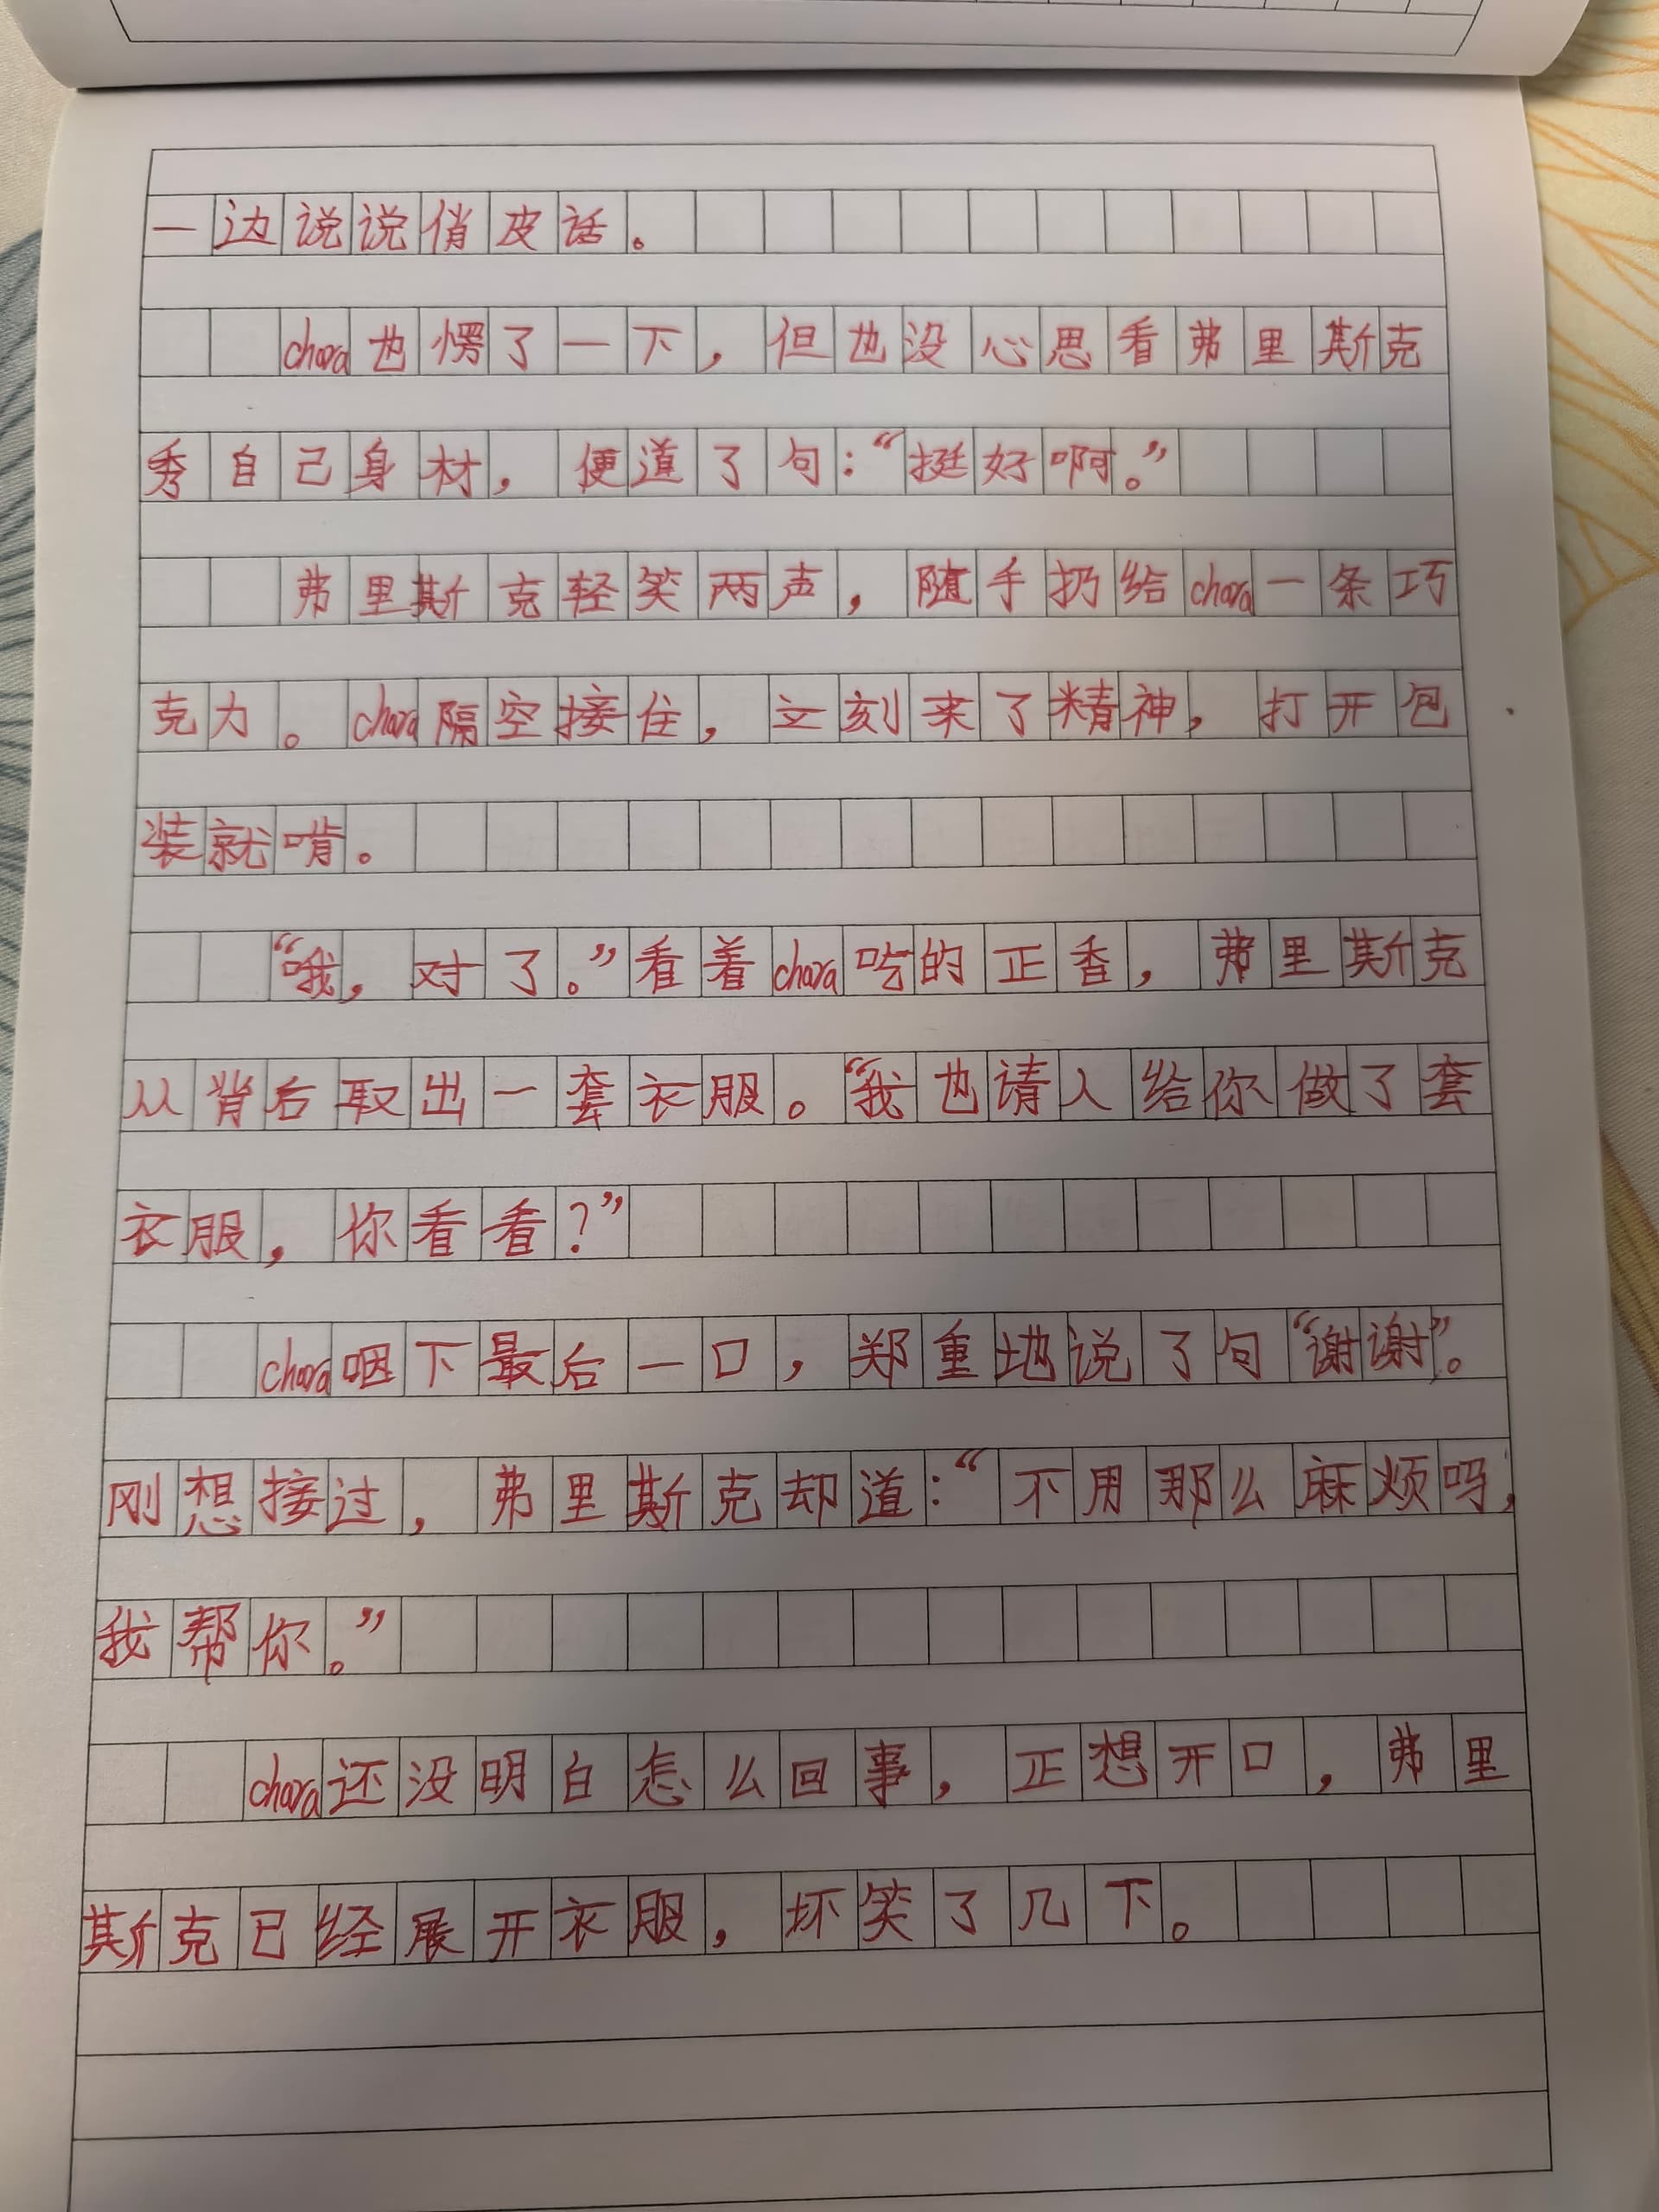 一边说说俏皮话。
chara也愣了一下，但也没心思看弗里斯克
秀自己身材，便道了句：“挺好啊。”
弗里斯克轻笑两声，随手扔给chara一条巧
克力。chara隔空接住，立刻来了精神，打开包
装就啃。
“哦，对了。”看着chara吃的正香，弗里斯克
从背后取出一套衣服。“我也请人给你做了套
衣服，你看看？”
chara咽下最后一口，郑重地说了句“谢谢”。
刚想接过，弗里斯克却道：“不用那么麻烦吗，
我帮你。”
chara还没明白怎么回事，正想开口，弗里
斯克已经展开衣服，坏笑了几下。